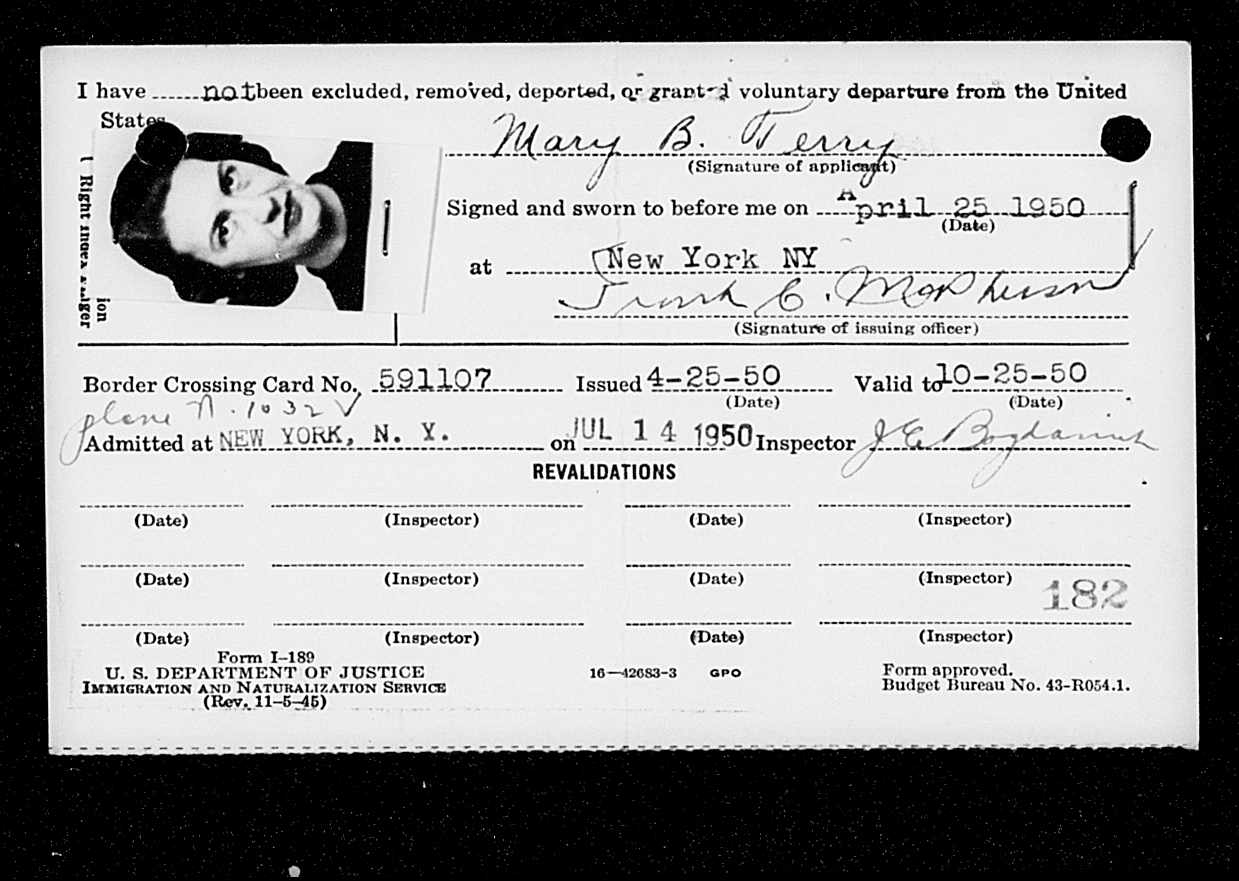 I have ......notbeen excluded, removed, deported, or granted voluntary departure from the United
States
Mary B. Terry
(Signature of applicant)
Right Index Finger
ion
Signed and sworn to before me on April 25 1950
(Date)
at New York NY
Frank C. MacPherson
(Signature of issuing officer)
Border Crossing Card No. 591107 Issued 4-25-50 Valid to 10-25-50
(Date) (Date)
plane N. 1032 √
Admitted at NEW YORK, N. Y. on JUL 14 1950 Inspector J E
REVALIDATIONS
(Date) (Inspector) (Date) (Inspector)
(Date) (Inspector) (Date) (Inspector)
182
(Date) (Inspector) (Date) (Inspector)
Form I-189
U. S. DEPARTMENT OF JUSTICE 16—42683-3 GPO Form approved.
IMMIGRATION AND NATURALIZATION SERVICE Budget Bureau No. 43-R054.1.
(Rev. 11-5-45)